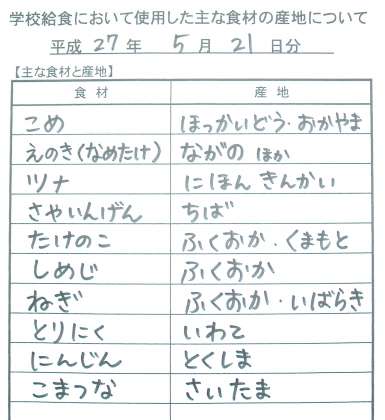 学校給食において使用した主な食材の産地について
平成 27 年 5 月 21 日分
【主な食材と産地】
食 材 産 地
こめ ほっかいどう・おかやま
えのき(なめたけ) ながの ほか
ツナ にほん きんかい
さやいんげん ちば
たけのこ ふくおか・くまもと
しめじ ふくおか
ねぎ ふくおか・いばらき
とりにく いわて
にんじん とくしま
こまつな さいたま